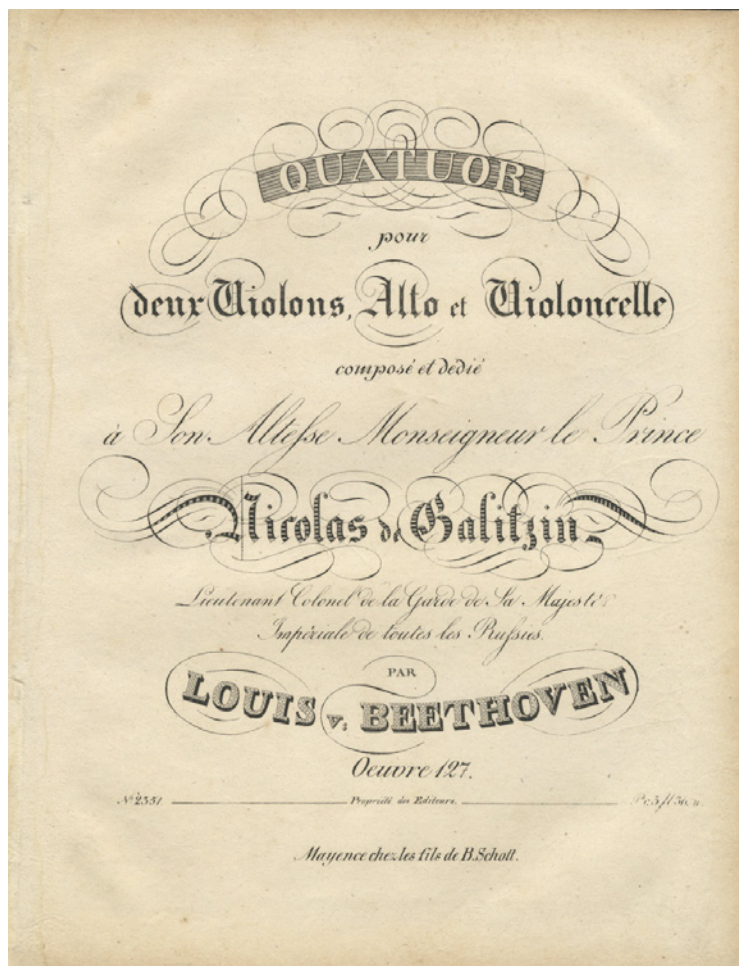 QUATUOR
pour
deux Violons, Alto et Violoncelle
composé et dedié
à Son Altesse Monseigneur le Prince
Nicolas de Galitzin
Lieutenant Colonel de la Garde de Sa Majesté
Impériale de toutes les Russies.
PAR
LOUIS v. BEETHOVEN
Oeuvre 127.
Nº 2351. Propriété des Editeurs. Pr. 3 fl 36
Mayence chez les fils de B. Schott.